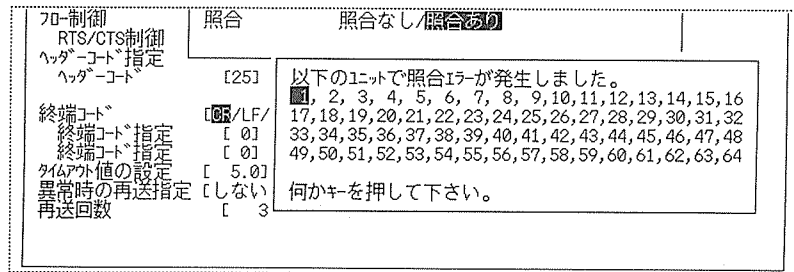 フロー制御 照合 照合なし/照合あり
RTS/CTS制御
ヘッダーコード指定
ヘッダーコード [25]
終端コード [CR/LF/
終端コード指定 [ 0]
終端コード指定 [ 0]
タイムアウト値の設定 [ 5.0]
異常時の再送指定 [しない
再送回数 [ 3
以下のユニットで照合エラーが発生しました。
1, 2, 3, 4, 5, 6, 7, 8, 9,10,11,12,13,14,15,16
17,18,19,20,21,22,23,24,25,26,27,28,29,30,31,32
33,34,35,36,37,38,39,40,41,42,43,44,45,46,47,48
49,50,51,52,53,54,55,56,57,58,59,60,61,62,63,64
何かキーを押して下さい。